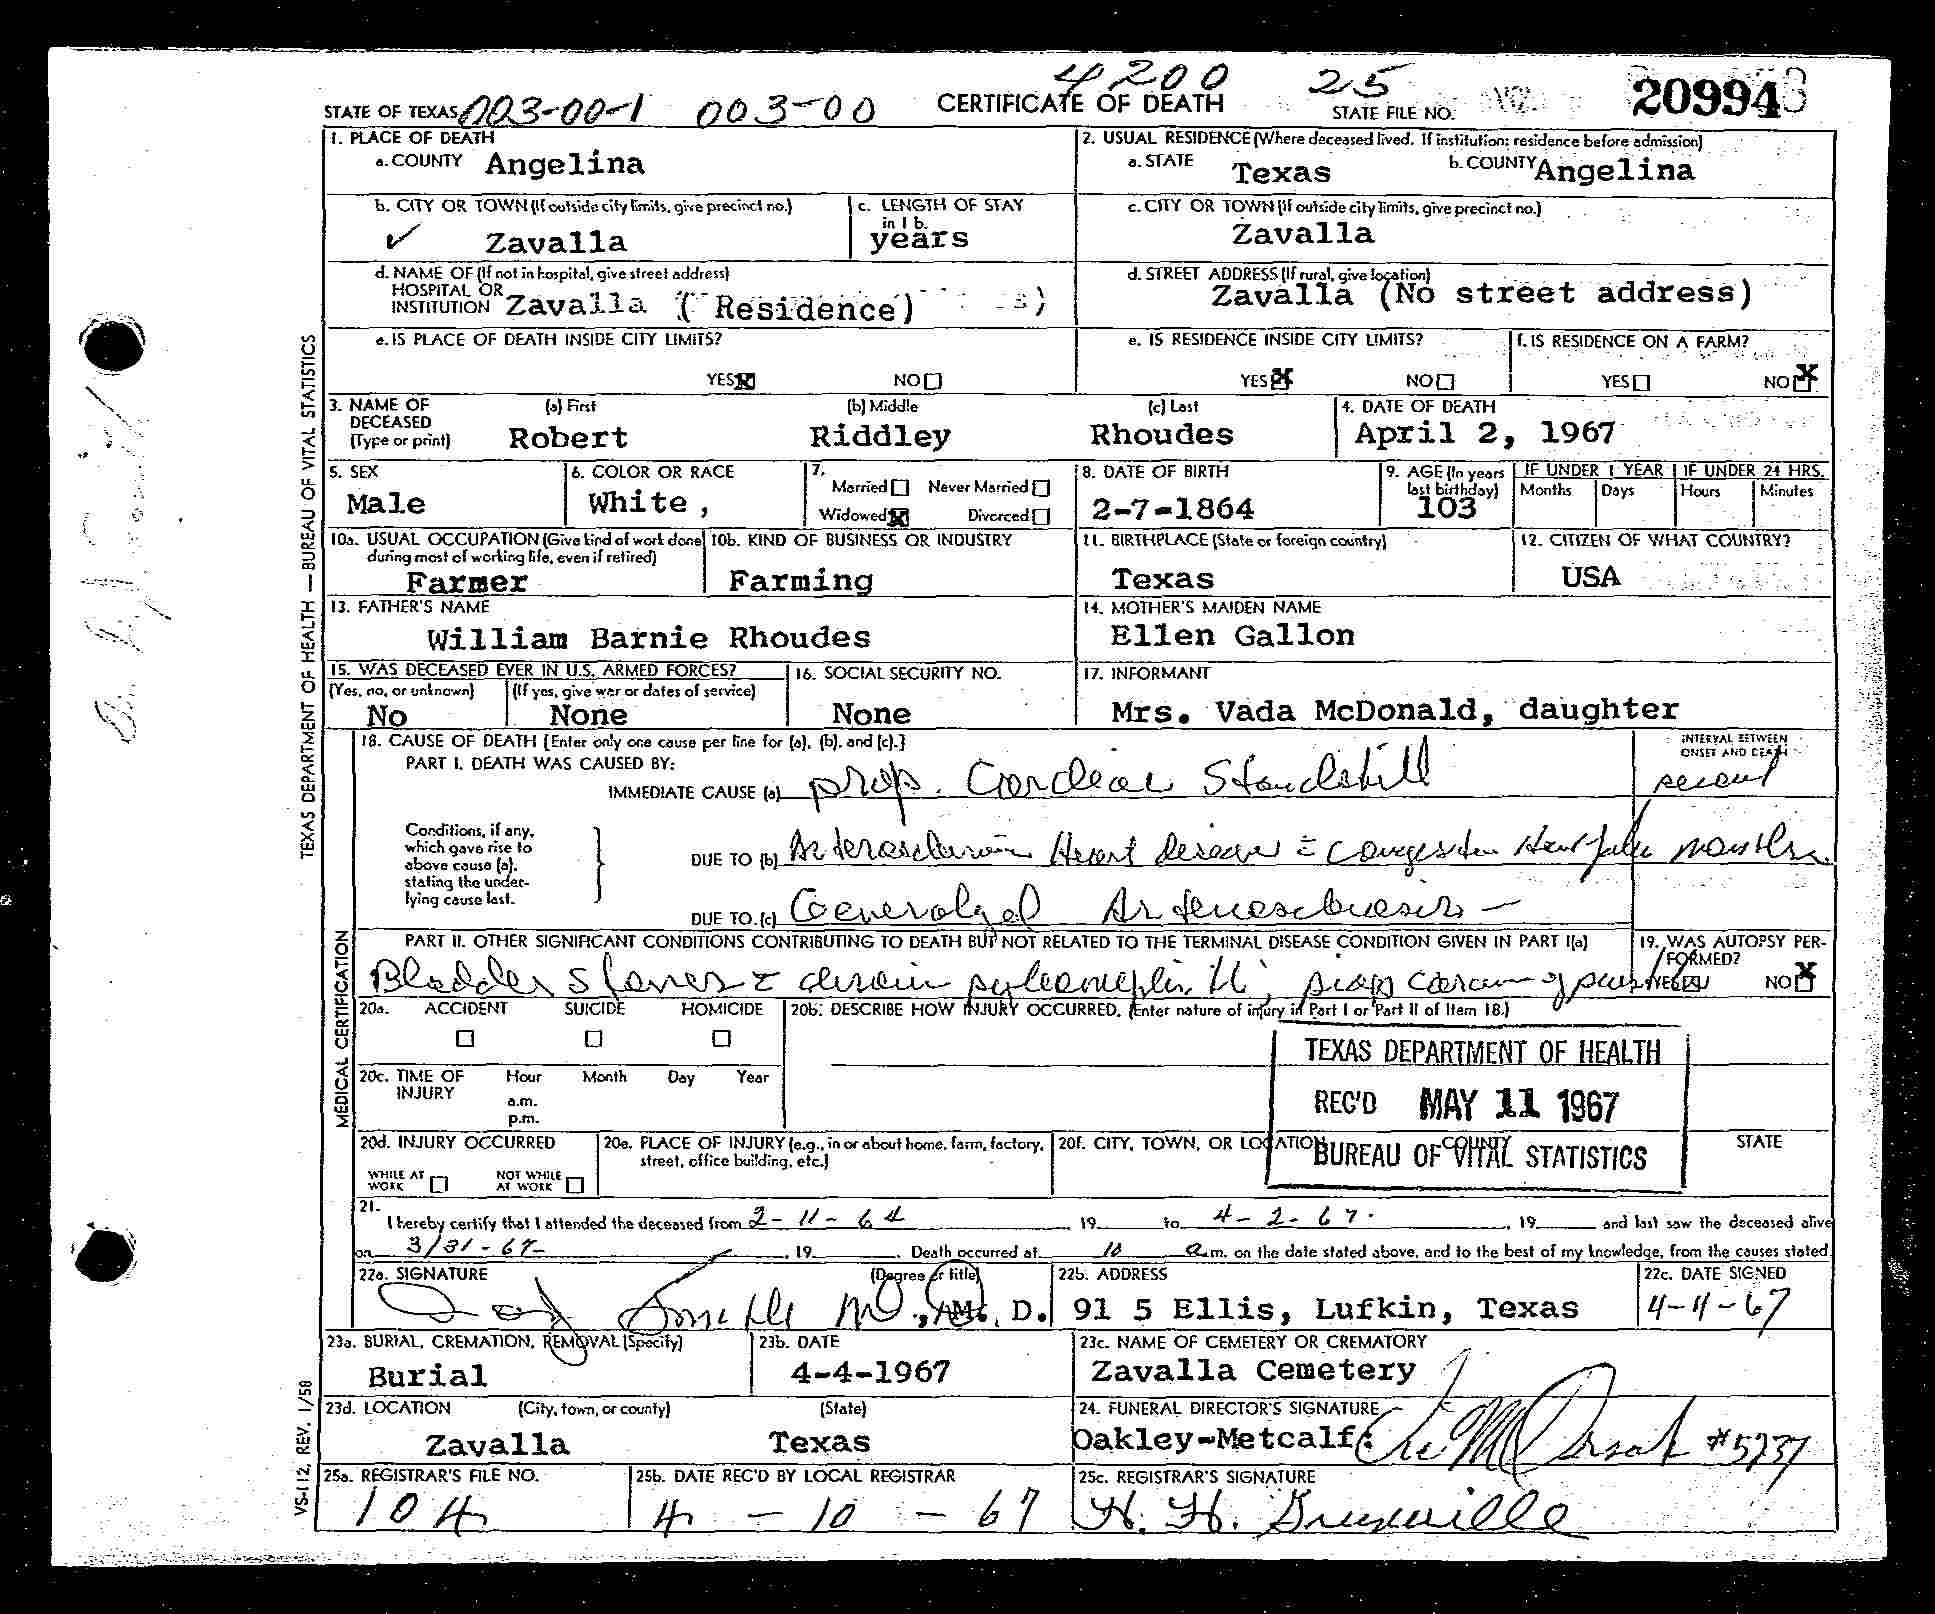 4200 25
STATE OF TEXAS 003-00-1 003-00 CERTIFICATE OF DEATH STATE FILE NO. 20994
1. PLACE OF DEATH
a. COUNTY Angelina
2. USUAL RESIDENCE (Where deceased lived. If institution: residence before admission)
a. STATE Texas b. COUNTY Angelina
b. CITY OR TOWN (If outside city limits, give precinct no.)
✓ Zavalla
c. LENGTH OF STAY in 1 b.
years
c. CITY OR TOWN (If outside city limits, give precinct no.)
Zavalla
d. NAME OF (If not in hospital, give street address)
HOSPITAL OR
INSTITUTION Zavalla ( Residence)
d. STREET ADDRESS (If rural, give location)
Zavalla (No street address)
e. IS PLACE OF DEATH INSIDE CITY LIMITS?
YES X NO
e. IS RESIDENCE INSIDE CITY LIMITS?
YES X NO
f. IS RESIDENCE ON A FARM?
YES NO X
3. NAME OF DECEASED (Type or print)
(a) First (b) Middle (c) Last
Robert Riddley Rhoudes
4. DATE OF DEATH
April 2, 1967
5. SEX
Male
6. COLOR OR RACE
White ,
7.
Married Never Married
Widowed X Divorced
8. DATE OF BIRTH
2-7-1864
9. AGE (In years last birthday)
103
IF UNDER 1 YEAR IF UNDER 24 HRS.
Months Days Hours Minutes
10a. USUAL OCCUPATION (Give kind of work done during most of working life, even if retired)
Farmer
10b. KIND OF BUSINESS OR INDUSTRY
Farming
11. BIRTHPLACE (State or foreign country)
Texas
12. CITIZEN OF WHAT COUNTRY?
USA
13. FATHER'S NAME
William Barnie Rhoudes
14. MOTHER'S MAIDEN NAME
Ellen Gallon
15. WAS DECEASED EVER IN U.S. ARMED FORCES?
(Yes, no, or unknown) (If yes, give war or dates of service)
No None
16. SOCIAL SECURITY NO.
None
17. INFORMANT
Mrs. Vada McDonald, daughter
18. CAUSE OF DEATH [Enter only one cause per line for (a), (b), and (c).]
PART I. DEATH WAS CAUSED BY:
INTERVAL BETWEEN ONSET AND DEATH
IMMEDIATE CAUSE (a) prop. Cardiac Standstill recent
Conditions, if any, which gave rise to above cause (a), stating the underlying cause last.
DUE TO (b) Arteriosclerotic Heart Disease c Congestive Heart failure months
DUE TO (c) Generalized Arteriosclerosis -
PART II. OTHER SIGNIFICANT CONDITIONS CONTRIBUTING TO DEATH BUT NOT RELATED TO THE TERMINAL DISEASE CONDITION GIVEN IN PART I(a)
Bladder Stones chronic pyelonephritis;
19. WAS AUTOPSY PERFORMED?
YES NO X
20a. ACCIDENT SUICIDE HOMICIDE
20b. DESCRIBE HOW INJURY OCCURRED. (Enter nature of injury in Part I or Part II of Item 18.)
20c. TIME OF INJURY
Hour Month Day Year
a.m.
p.m.
TEXAS DEPARTMENT OF HEALTH
REC'D MAY 11 1967
BUREAU OF VITAL STATISTICS
20d. INJURY OCCURRED
WHILE AT WORK NOT WHILE AT WORK
20e. PLACE OF INJURY (e.g., in or about home, farm, factory, street, office building, etc.)
20f. CITY, TOWN, OR LOCATION COUNTY STATE
21.
I hereby certify that I attended the deceased from 2-11-64, 19 to 4-2-67, 19 and last saw the deceased alive
on 3/31-67, 19 . Death occurred at 10 a.m. on the date stated above, and to the best of my knowledge, from the causes stated.
22a. SIGNATURE (Degree or title)
M.D.
22b. ADDRESS
91 5 Ellis, Lufkin, Texas
22c. DATE SIGNED
4-4-67
23a. BURIAL, CREMATION, REMOVAL (Specify)
Burial
23b. DATE
4-4-1967
23c. NAME OF CEMETERY OR CREMATORY
Zavalla Cemetery
23d. LOCATION (City, town, or county) (State)
Zavalla Texas
24. FUNERAL DIRECTOR'S SIGNATURE
Oakley-Metcalf: #5737
25a. REGISTRAR'S FILE NO.
104
25b. DATE REC'D BY LOCAL REGISTRAR
4 - 10 - 67
25c. REGISTRAR'S SIGNATURE
H. H.
TEXAS DEPARTMENT OF HEALTH — BUREAU OF VITAL STATISTICS
MEDICAL CERTIFICATION
VS-112, REV. 1/58